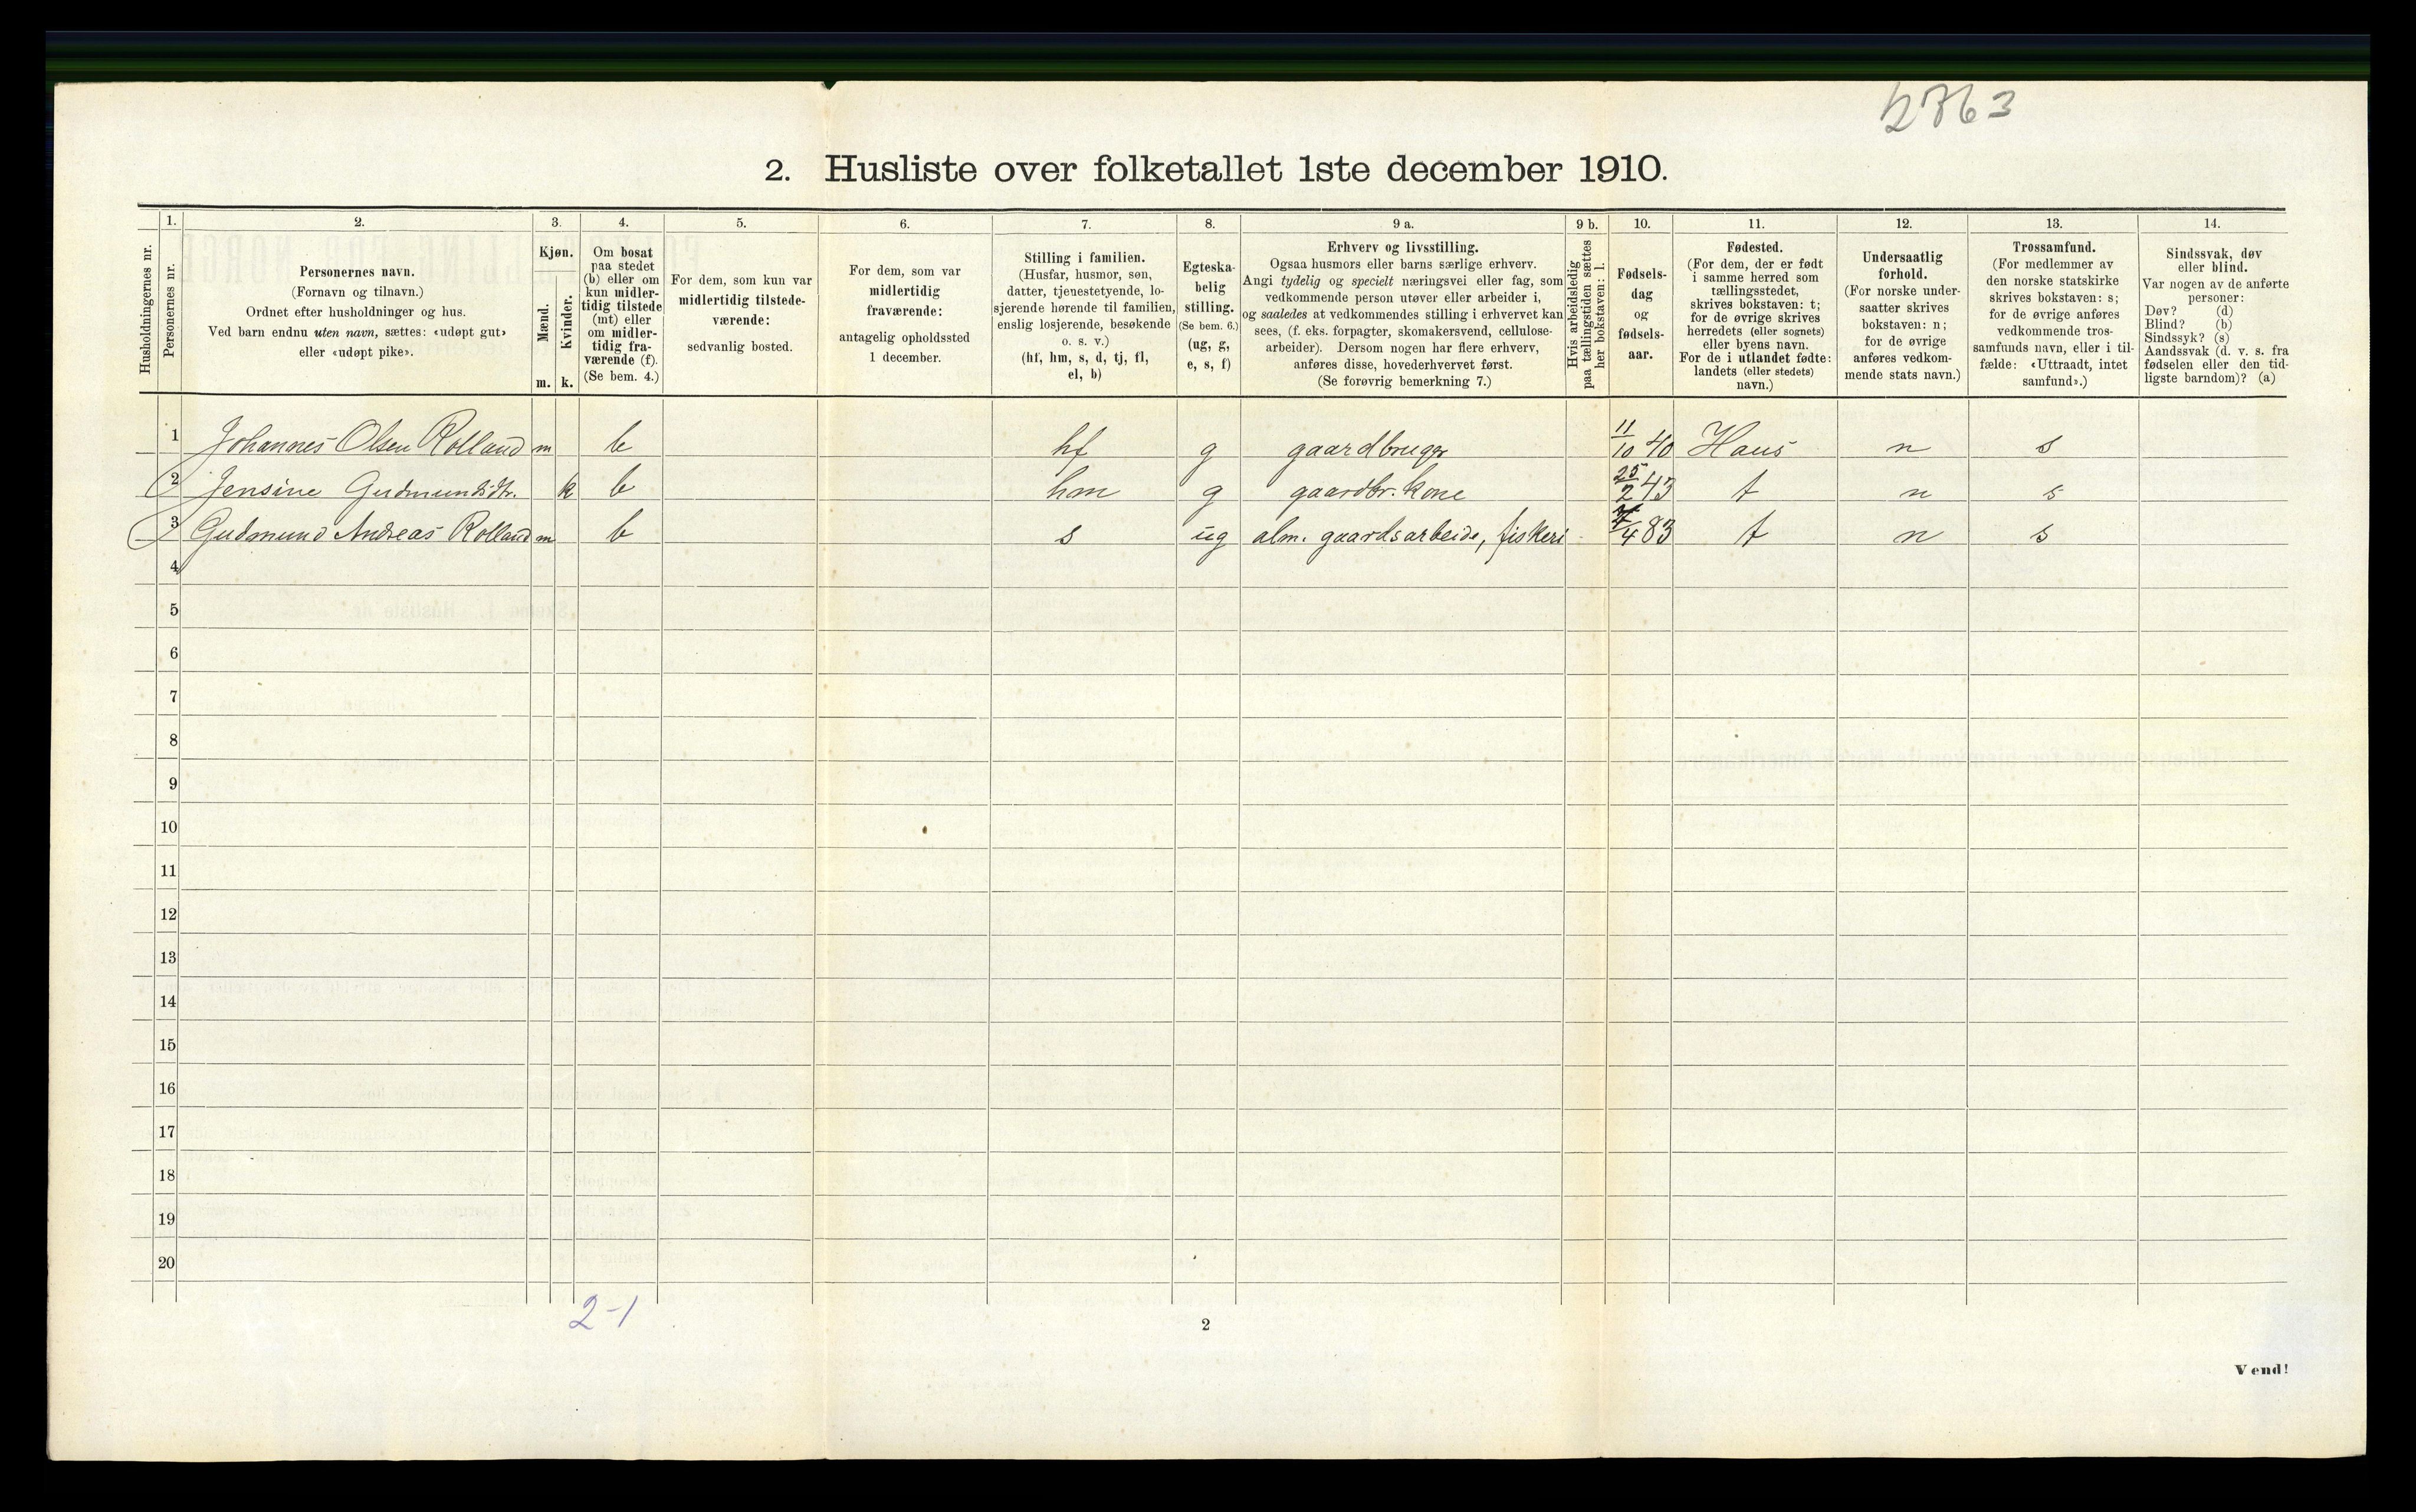 2763
2. Husliste over folketallet 1ste december 1910.
Husholdningernes nr.
1.
Personernes nr.
2.
Personernes navn.
(Fornavn og tilnavn.)
Ordnet efter husholdninger og hus.
Ved barn endnu uten navn, sættes: «udøpt gut»
eller «udøpt pike».
3.
Kjøn.
Mænd.
Kvinder.
m. k.
4.
Om bosat
paa stedet
(b) eller om
kun midler-
tidig tilstede
(mt) eller
om midler-
tidig fra-
værende (f).
(Se bem. 4.)
5.
For dem, som kun var
midlertidig tilstede-
værende:
sedvanlig bosted.
6.
For dem, som var
midlertidig
fraværende:
antagelig opholdssted
1 december.
7.
Stilling i familien.
(Husfar, husmor, søn,
datter, tjenestetyende, lo-
sjerende hørende til familien,
enslig losjerende, besøkende
o. s. v.)
(hf, hm, s, d, tj, fl,
el, b)
8.
Egteska-
belig
stilling.
(Se bem. 6.)
(ug, g,
e, s, f)
9 a.
Erhverv og livsstilling.
Ogsaa husmors eller barns særlige erhverv.
Angi tydelig og specielt næringsvei eller fag, som
vedkommende person utøver eller arbeider i,
og saaledes at vedkommendes stilling i erhvervet kan
sees, (f. eks. forpagter, skomakersvend, cellulose-
arbeider). Dersom nogen har flere erhverv,
anføres disse, hovederhvervet først.
(Se forøvrig bemerkning 7.)
9 b.
Hvis arbeidsledig
paa tællingstiden sættes
her bokstaven: l.
10.
Fødsels-
dag
og
fødsels-
aar.
11.
Fødested.
(For dem, der er født
i samme herred som
tællingsstedet,
skrives bokstaven: t;
for de øvrige skrives
herredets (eller sognets)
eller byens navn.
For de i utlandet fødte:
landets (eller stedets)
navn.)
12.
Undersaatlig
forhold.
(For norske under-
saatter skrives
bokstaven: n;
for de øvrige
anføres vedkom-
mende stats navn.)
13.
Trossamfund.
(For medlemmer av
den norske statskirke
skrives bokstaven: s;
for de øvrige anføres
vedkommende tros-
samfunds navn, eller i til-
fælde: «Uttraadt, intet
samfund».)
14.
Sindssvak, døv
eller blind.
Var nogen av de anførte
personer:
Døv? (d)
Blind? (b)
Sindssyk? (s)
Aandssvak (d. v. s. fra
fødselen eller den tid-
ligste barndom)? (a)
1 Johannes Olsen Rolland m b hf g gaardbruger 11/10 40 Haus n s
2 Jensine Gudmundsdtr. k b hm g gaardbr. kone 25/2 43 t n s
3 Gudmund Andreas Rolland m b s ug alm. gaardsarbeide, fiskeri /4 83 t n s
4
5
6
7
8
9
10
11
12
13
14
15
16
17
18
19
20
2-1
2
Vend!